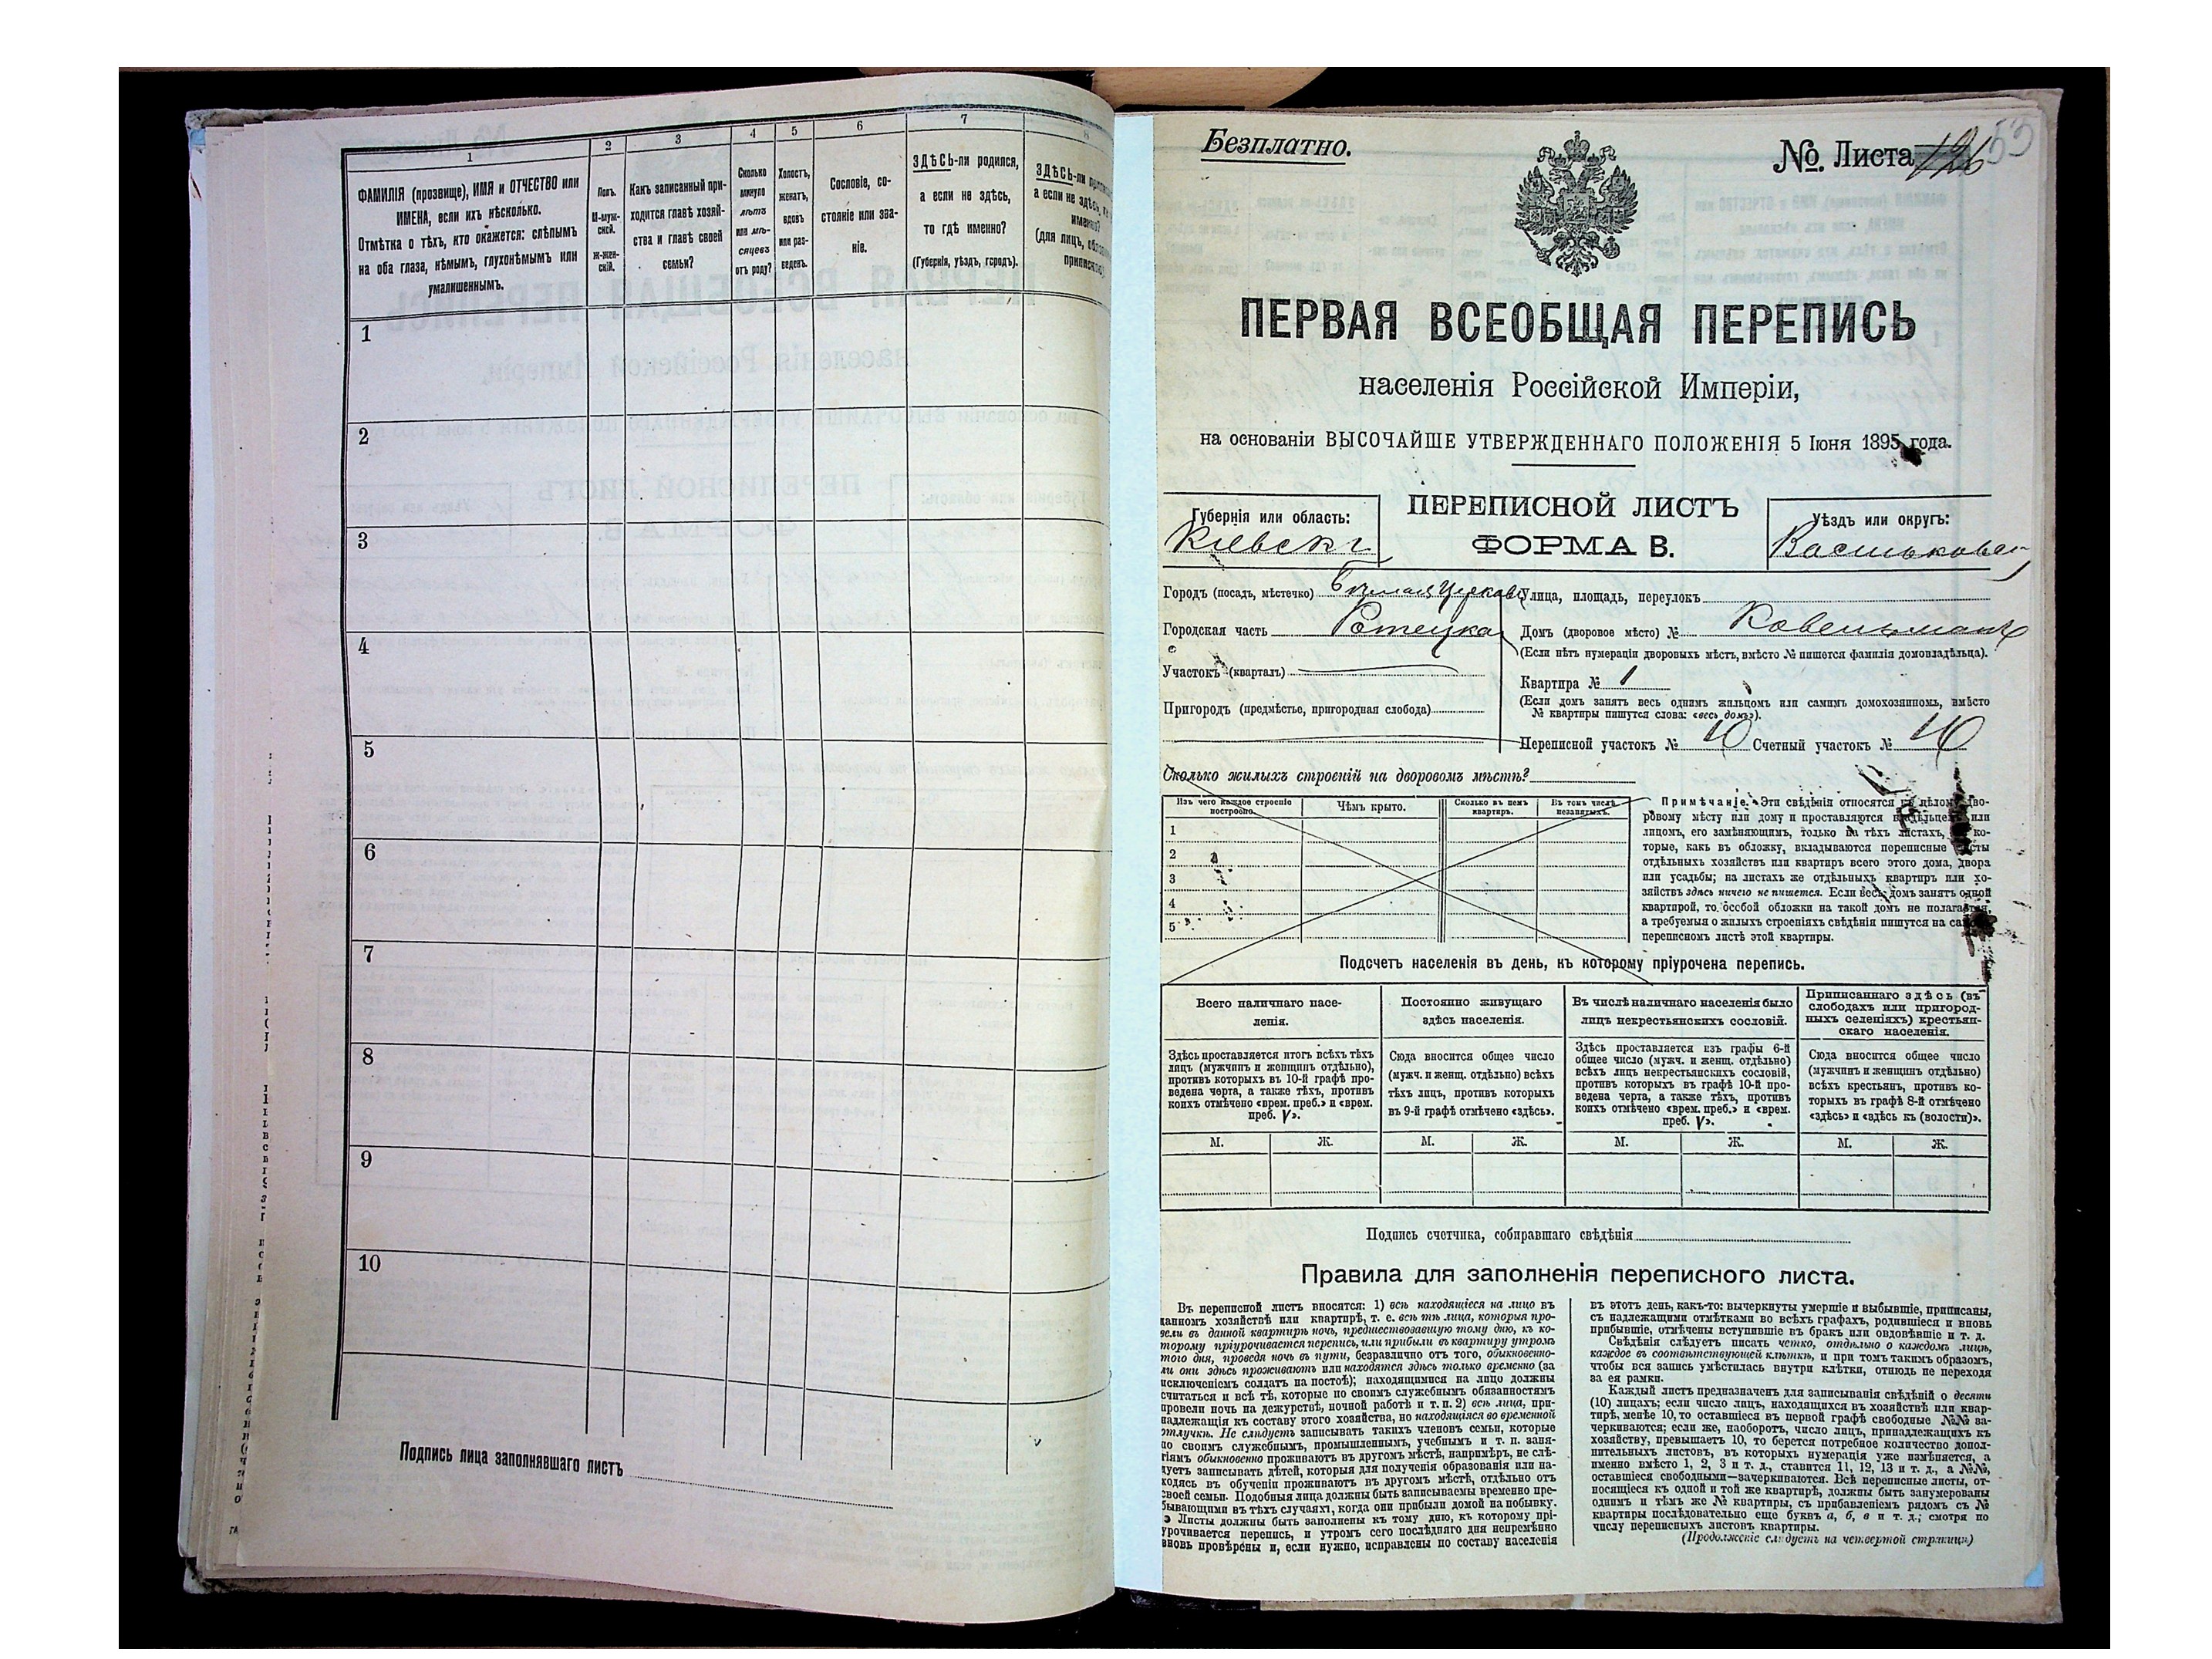 1
2
3
4
5
6
7
ФАМИЛІЯ (прозвище), ИМЯ и ОТЧЕСТВО или
ИМЕНА, если ихъ нѣсколько.
Отмѣтка о тѣхъ, кто окажется: слѣпымъ
на оба глаза, нѣмымъ, глухонѣмымъ или
умалишеннымъ.
Полъ.
М-муж-
ской.
Ж-жен-
скій.
Какъ записанный при-
ходится главѣ хозяй-
ства и главѣ своей
семьи?
Сколько
минуло
лѣтъ
или мѣ-
сяцевъ
отъ роду?
Холостъ,
женатъ,
вдовъ
или раз-
веденъ.
Сословіе, со-
стояніе или зва-
ніе.
ЗДѢСЬ-ли родился,
а если не здѣсь,
то гдѣ именно?
(Губернія, уѣздъ, городъ).
ЗДѢСЬ-ли
а если не здѣсь,
(для лицъ,
1
2
3
4
5
6
7
8
9
10
Подпись лица заполнявшаго листъ
Безплатно.
№. Листа 126
53
ПЕРВАЯ ВСЕОБЩАЯ ПЕРЕПИСЬ
населенія Россійской Имперіи,
на основаніи ВЫСОЧАЙШЕ УТВЕРЖДЕННАГО ПОЛОЖЕНІЯ 5 Іюня 1895 года.
Губернія или область:
Кіевск г
ПЕРЕПИСНОЙ ЛИСТЪ
ФОРМА В.
Уѣздъ или округъ:
Городъ (посадъ, мѣстечко) Бѣлая Церковь
Городская часть
Участокъ (кварталъ)
Пригородъ (предмѣстье, пригородная слобода)
Улица, площадь, переулокъ
Домъ (дворовое мѣсто) №
(Если нѣтъ нумераціи дворовыхъ мѣстъ, вмѣсто № пишется фамилія домовладѣльца).
Квартира № 1
(Если домъ занятъ весь однимъ жильцомъ или самимъ домохозяиномъ, вмѣсто
№ квартиры пишутся слова: «весь домъ»).
Переписной участокъ № 10 Счетный участокъ № 10
Сколько жилыхъ строеній на дворовомъ мѣстѣ?
Изъ чего каждое строеніе
построено.
Чѣмъ крыто.
Сколько въ немъ
квартиръ.
Въ томъ числѣ
незанятыхъ.
1
2
3
4
5
Примѣчаніе. Эти свѣдѣнія относятся къ цѣлому дво-
ровому мѣсту или дому и проставляются владѣльцемъ или
лицомъ, его замѣняющимъ, только на тѣхъ листахъ, ко-
торые, какъ въ обложку, вкладываются переписные листы
отдѣльныхъ хозяйствъ или квартиръ всего этого дома, двора
или усадьбы; на листахъ же отдѣльныхъ квартиръ или хо-
зяйствъ здѣсь ничего не пишется. Если весь домъ занятъ одной
квартирой, то особой обложки на такой домъ не полагается,
а требуемыя о жилыхъ строеніяхъ свѣдѣнія пишутся на самомъ
переписномъ листѣ этой квартиры.
Подсчетъ населенія въ день, къ которому пріурочена перепись.
Всего наличнаго насе-
ленія.
Постоянно живущаго
здѣсь населенія.
Въ числѣ наличнаго населенія было
лицъ некрестьянскихъ сословій.
Приписаннаго здѣсь (въ
слободахъ или пригород-
ныхъ селеніяхъ) крестьян-
скаго населенія.
Здѣсь проставляется итогъ всѣхъ тѣхъ
лицъ (мужчинъ и женщинъ отдѣльно),
противъ которыхъ въ 10-й графѣ про-
ведена черта, а также тѣхъ, противъ
коихъ отмѣчено «врем. преб.» и «врем.
преб. V».
Сюда вносится общее число
(мужч. и женщ. отдѣльно) всѣхъ
тѣхъ лицъ, противъ которыхъ
въ 9-й графѣ отмѣчено «здѣсь».
Здѣсь проставляется изъ графы 6-й
общее число (мужч. и женщ. отдѣльно)
всѣхъ лицъ некрестьянскихъ сословій,
противъ которыхъ въ графѣ 10-й про-
ведена черта, а также тѣхъ, противъ
коихъ отмѣчено «врем. преб.» и «врем.
преб. V».
Сюда вносится общее число
(мужчинъ и женщинъ отдѣльно)
всѣхъ крестьянъ, противъ ко-
торыхъ въ графѣ 8-й отмѣчено
«здѣсь» и «здѣсь къ (волости)».
М. Ж. М. Ж. М. Ж. М. Ж.
Подпись счетчика, собиравшаго свѣдѣнія
Правила для заполненія переписного листа.
Въ переписной листъ вносятся: 1) всѣ находящіеся на лицо въ
данномъ хозяйствѣ или квартирѣ, т. е. всѣ тѣ лица, которыя про-
вели въ данной квартирѣ ночь, предшествовавшую тому дню, къ ко-
торому пріурочивается перепись, или прибыли въ квартиру утромъ
того дня, проведя ночь въ пути, безразлично отъ того, обыкновенно-
ли они здѣсь проживаютъ или находятся здѣсь только временно (за
исключеніемъ солдатъ на постоѣ); находящимися на лицо должны
считаться и всѣ тѣ, которые по своимъ служебнымъ обязанностямъ
провели ночь на дежурствѣ, ночной работѣ и т. п. 2) всѣ лица, при-
надлежащія къ составу этого хозяйства, но находящіяся во временной
отлучкѣ. Не слѣдуетъ записывать такихъ членовъ семьи, которые
по своимъ служебнымъ, промышленнымъ, учебнымъ и т. п. заня-
тіямъ обыкновенно проживаютъ въ другомъ мѣстѣ, напримѣръ, не слѣ-
дуетъ записывать дѣтей, которыя для полученія образованія или на-
ходясь въ обученіи проживаютъ въ другомъ мѣстѣ, отдѣльно отъ
своей семьи. Подобныя лица должны быть записываемы временно пре-
бывающими въ тѣхъ случаяхъ, когда они прибыли домой на побывку.
Листы должны быть заполнены къ тому дню, къ которому прі-
урочивается перепись, и утромъ сего послѣдняго дня непремѣнно
вновь провѣрены и, если нужно, исправлены по составу населенія
въ этотъ день, какъ-то: вычеркнуты умершіе и выбывшіе, приписаны,
съ надлежащими отмѣтками во всѣхъ графахъ, родившіеся и вновь
прибывшіе, отмѣчены вступившіе въ бракъ или овдовѣвшіе и т. д.
Свѣдѣнія слѣдуетъ писать четко, отдѣльно о каждомъ лицѣ,
каждое въ соотвѣтствующей клѣткѣ, и при томъ такимъ образомъ,
чтобы вся запись умѣстилась внутри клѣтки, отнюдь не переходя
за ея рамки.
Каждый листъ предназначенъ для записыванія свѣдѣній о десяти
(10) лицахъ; если число лицъ, находящихся въ хозяйствѣ или квар-
тирѣ, менѣе 10, то оставшіеся въ первой графѣ свободные №№ за-
черкиваются; если же, наоборотъ, число лицъ, принадлежащихъ къ
хозяйству, превышаетъ 10, то берется потребное количество допол-
нительныхъ листовъ, въ которыхъ нумерація уже измѣняется, а
именно вмѣсто 1, 2, 3 и т. д., ставится 11, 12, 13 и т. д., а №№,
оставшіеся свободными—зачеркиваются. Всѣ переписные листы, от-
носящіеся къ одной и той же квартирѣ, должны быть занумерованы
однимъ и тѣмъ же № квартиры, съ прибавленіемъ рядомъ съ №
квартиры послѣдовательно еще буквъ а, б, в и т. д.; смотря по
числу переписныхъ листовъ квартиры.
(Продолженіе слѣдуетъ на четвертой страницѣ)